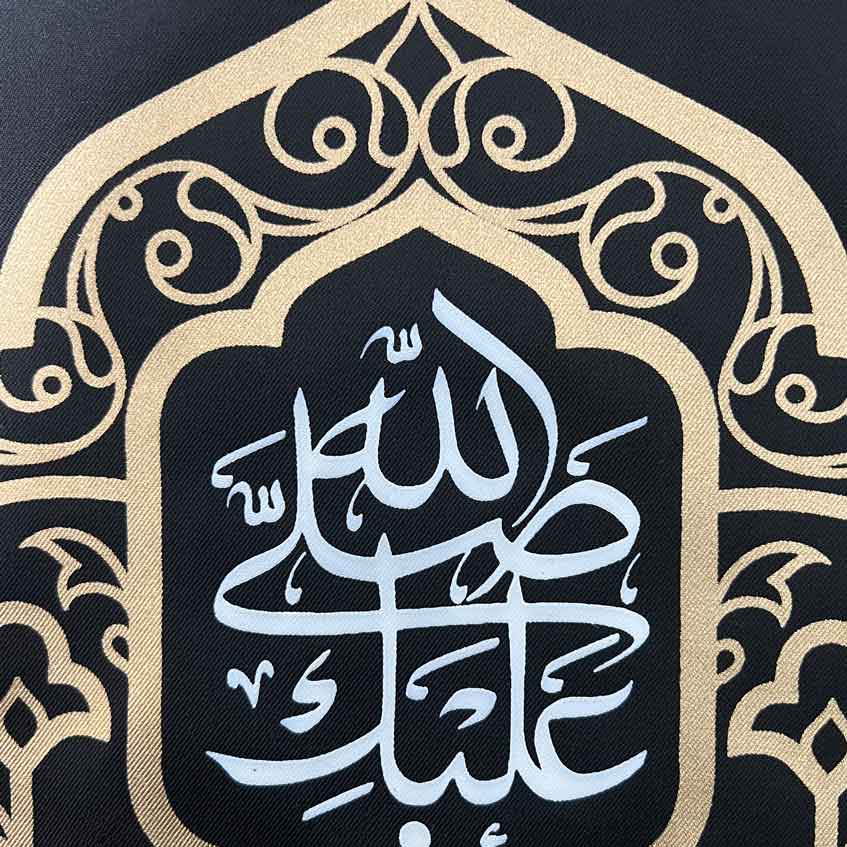 صَلَّى اللّٰه
عليك